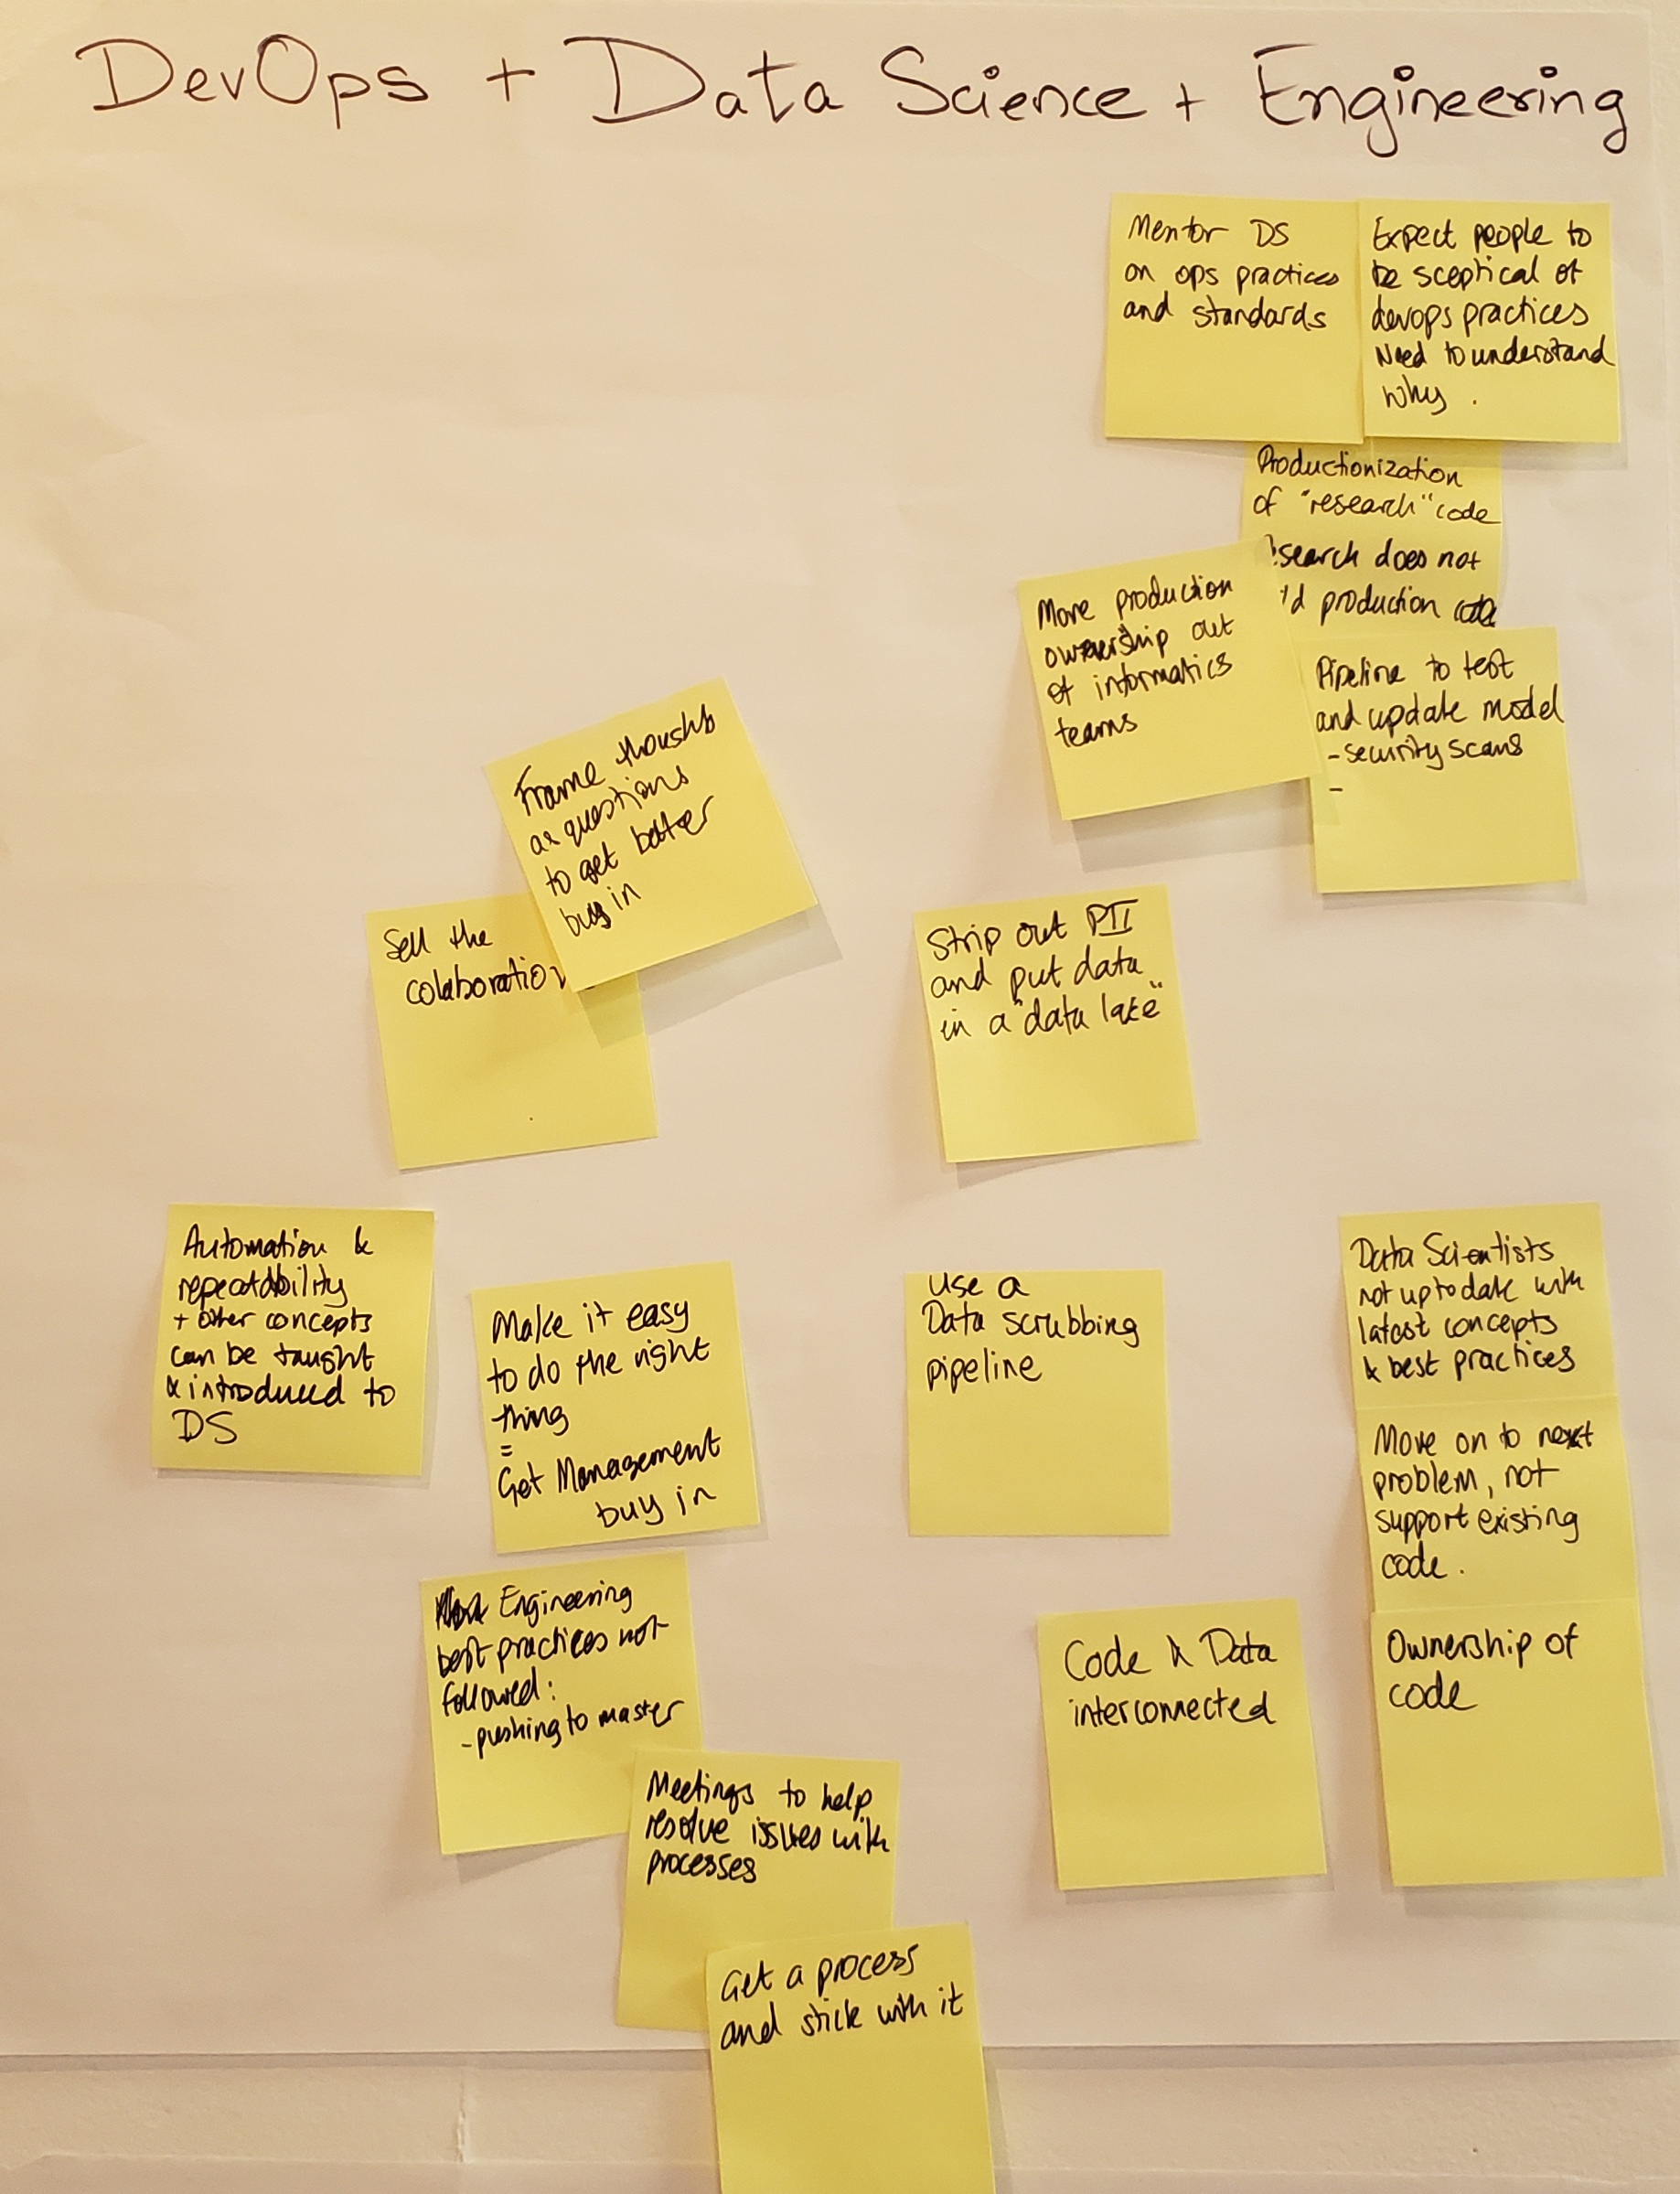 DevOps + Data Science + Engineering
Mentor DS
on ops practices
and standards
Expect people to
be sceptical of
devops practices
Need to understand
why.
Productionization
of "research" code
search does not
production code
Move production
ownership out
of informatics
teams
Pipeline to test
and update model
- security scans
-
Frame thoughts
as questions
to get better
buy in
Sell the
colaboration
Strip out PII
and put data
in a "data lake"
Automation &
repeatability
+ other concepts
can be taught
& introduced to
DS
Make it easy
to do the right
thing
=
Get Management
buy in
Use a
Data scrubbing
pipeline
Data Scientists
not up to date with
latest concepts
& best practices
Move on to next
problem, not
support existing
code.
Ownership of
code
Engineering
best practices not
followed:
- pushing to master
Code & Data
interconnected
Meetings to help
resolve issues with
processes
Get a process
and stick with it